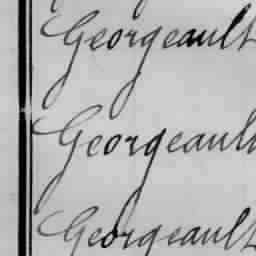 Georgeault
Georgeault
Georgeault